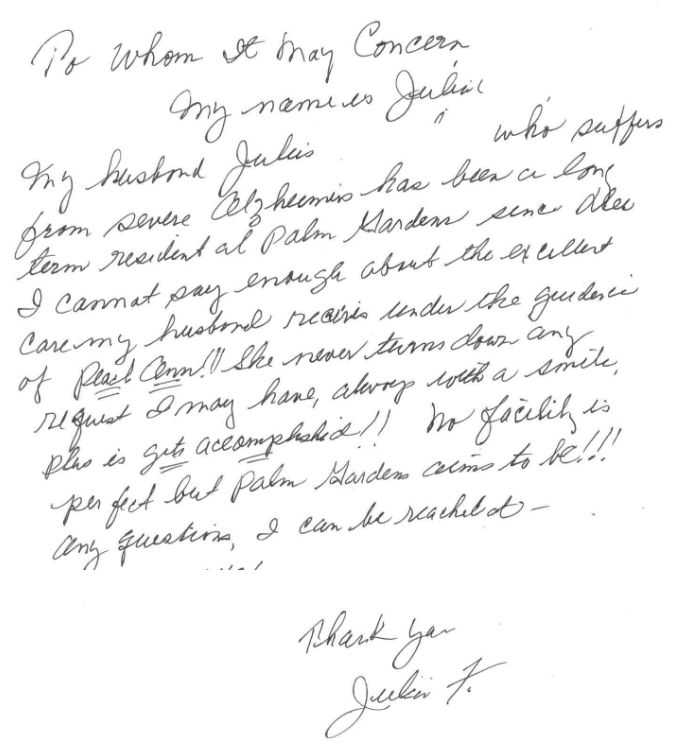 To Whom It May Concern
My name is Julia
My husband Julius who suffers
from severe Alzheimers has been a long
term resident at Palm Gardens since Dec
I cannot say enough about the excellent
care my husband receives under the guidance
of Pearl Ann!! She never turns down any
request I may have, always with a smile,
plus is gets accomplished!! No facility is
perfect but Palm Gardens aims to be!!!
Any questions, I can be reached at –
Thank you
F.